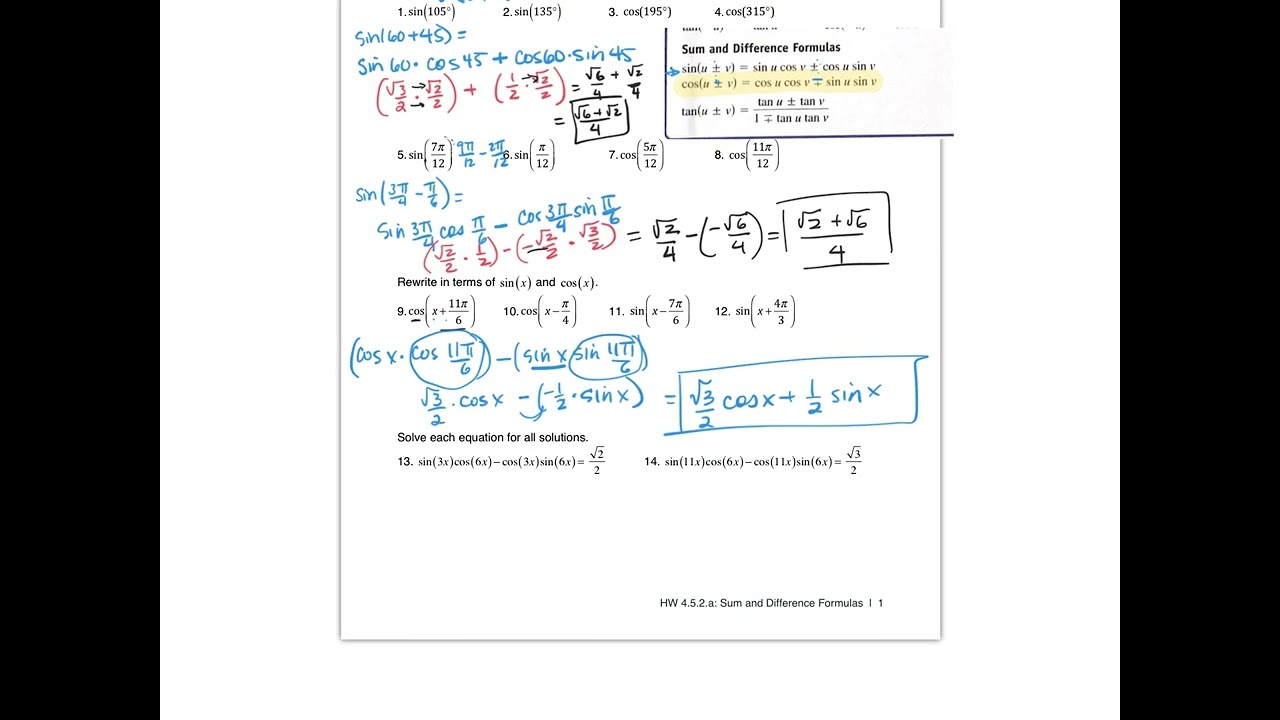 1. sin(105°) 2. sin(135°) 3. cos(195°) 4. cos(315°)
sin(60+45) =
sin 60 · cos 45 + cos60 · sin 45
(√3/2 · √2/2) + (1/2 · √2/2) = √6/4 + √2/4
= √6+√2/4
Sum and Difference Formulas
sin(u ± v) = sin u cos v ± cos u sin v
cos(u ± v) = cos u cos v ∓ sin u sin v
tan(u ± v) = tan u ± tan v / 1 ∓ tan u tan v
5. sin(7π/12) 9π/12 - 2π/12 6. sin(π/12) 7. cos(5π/12) 8. cos(11π/12)
sin(3π/4 - π/6) =
sin 3π/4 cos π/6 - cos 3π/4 sin π/6
(√2/2 · 1/2) - (-√2/2 · √3/2) = √2/4 - (-√6/4) = √2 + √6/4
Rewrite in terms of sin(x) and cos(x).
9. cos(x+11π/6) 10. cos(x-π/4) 11. sin(x-7π/6) 12. sin(x+4π/3)
(cos x · cos 11π/6) - (sin x sin 11π/6)
√3/2 · cos x - (-1/2 · sin x) = √3/2 cos x + 1/2 sin x
Solve each equation for all solutions.
13. sin(3x)cos(6x)-cos(3x)sin(6x)=√2/2 14. sin(11x)cos(6x)-cos(11x)sin(6x)=√3/2
HW 4.5.2.a: Sum and Difference Formulas | 1